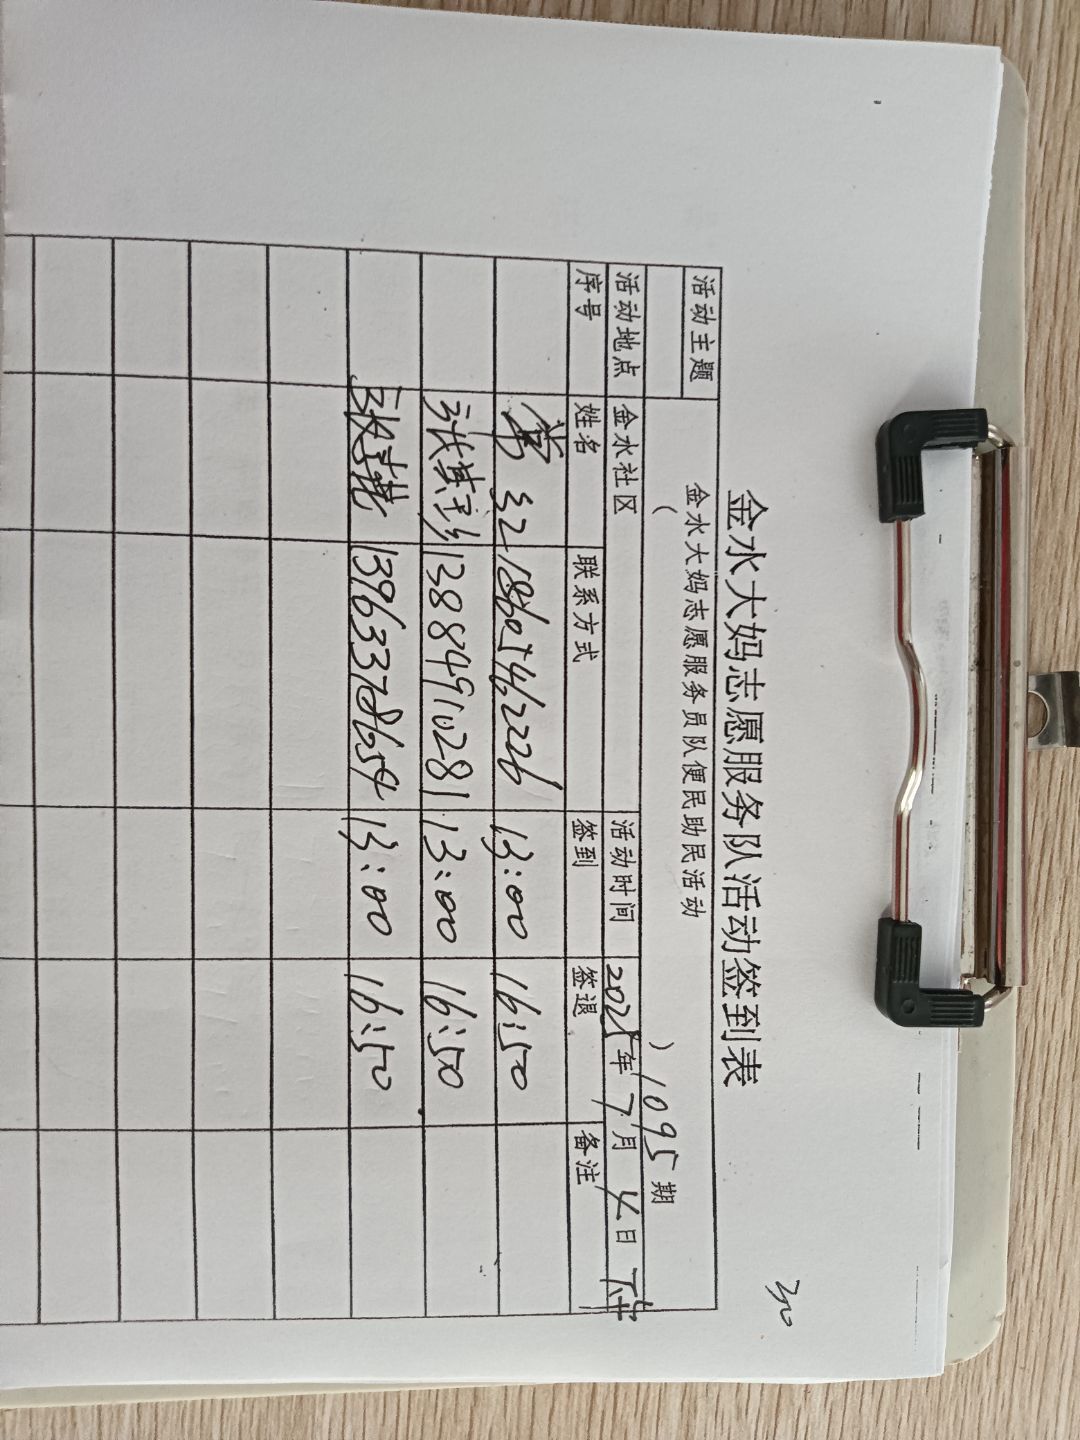 金水大妈志愿服务队活动签到表
活动主题 金水大妈志愿服务员队便民助民活动
( ) 1095期
活动地点 金水社区 活动时间 2025年7月4日 下午
序号 姓名 联系方式 签到 签退 备注
18605412226 13:00 16:50
张其彩 13884910281 13:00 16:50
13963378654 13:00 16:50